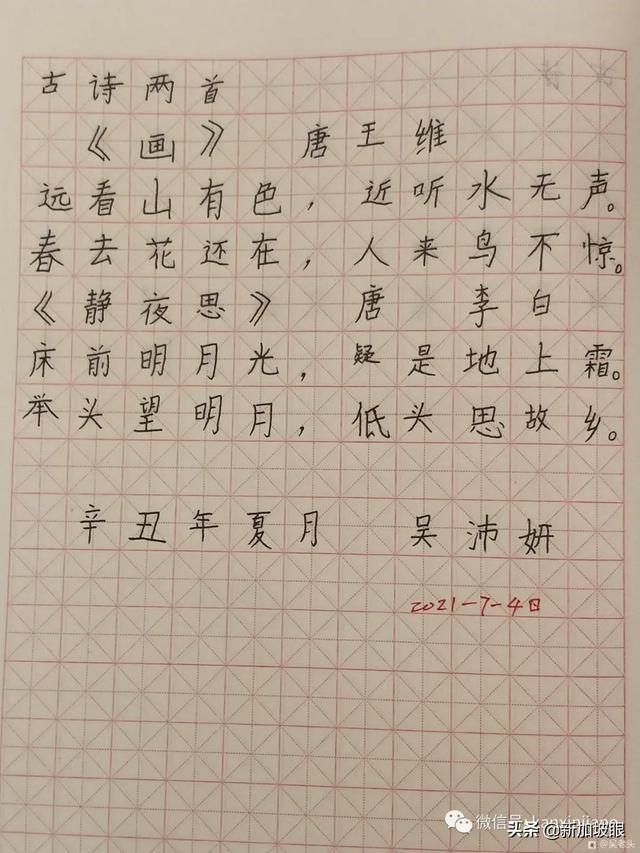 古诗两首
《画》 唐 王维
远看山有色，近听水无声。
春去花还在，人来鸟不惊。
《静夜思》 唐 李白
床前明月光，疑是地上霜。
举头望明月，低头思故乡。
辛丑年夏月 吴沛妍
2021-7-4日
微信号: kanxinjiapo
头条 @新加坡眼
@吴老头